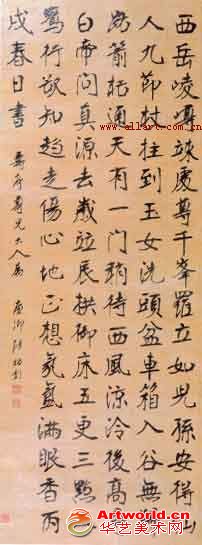 西岳崚嶒竦處尊千峯羅立如兒孫安得仙
人九節杖拄到玉女洗頭盆車箱入谷無歸
路箭栝通天有一門稍待西風涼冷後高尋
白帝問真源去歲茲辰拱御床五更三點入
鵷行欲知趨走傷心地正想氤氳滿眼香丙
戌春日書
尊兄大人屬
Artworld.cn
华艺美术网